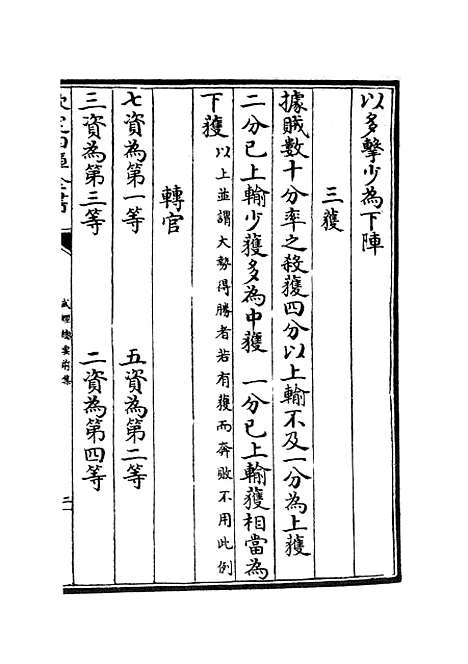 以多擊少為下陣
三獲
據賊數十分率之殺獲四分以上輸不及一分為上獲
二分已上輸少獲多為中獲　一分已上輸獲相當為
下獲以上並謂大勢得勝者若有獲而奔敗不用此例
轉官
七資為第一等　五資為第二等
三資為第三等　二資為第四等
武經總要前集